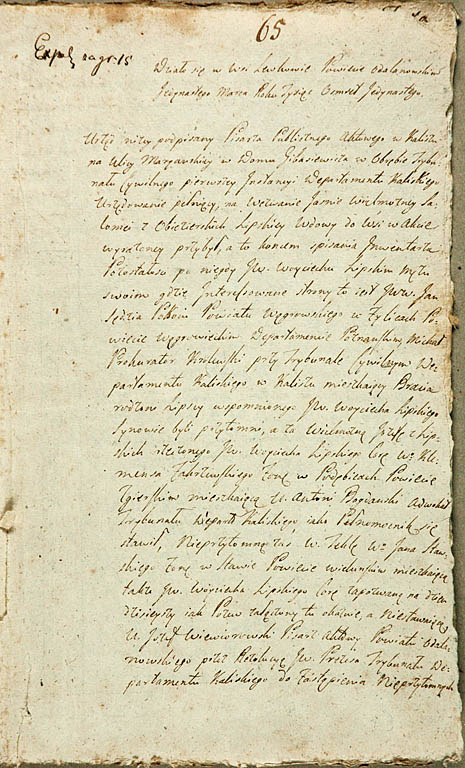 65
Działo się w wsi Lewkowie Powiecie Odalanowskim
Jedynastego Marca Roku Tysiąc Osmset Jedynastego.
Urząd niżey podpisany Pisarza Publicznego Aktowego w Kaliszu
na Ulicy Maryańskiey w Domu w Obrębie Trybu-
nału Cywilnego pierwszey Instancyi Departamentu Kaliskiego
Urzędowanie pełniący, na wezwanie Jaśnie Wielmożney Sa-
lomei z Objezierskich Lipskiey Wdowy do Wsi w Akcie
wyrażoney przybył, a to końcem spisania Inwentarza
Pozostałości po niegdy Jw. Woyciechu Lipskim mężu
swoim gdzie Interessowane strony to iest Jww. Jan
Sędzia Pokoiu Powiatu Węgrowskiego w Po-
wiecie Węgrowieckim Departamencie Poznańskim, Michał
Prokurator Królewski przy Trybunale Cywilnym De-
partamentu Kaliskiego w Kaliszu mieszkaiący Bracia
rodzeni Lipscy wspomnionego Jw. Woyciecha Lipskiego
Synowie byli przytomni, a to Wielmożną Józefę z Lip-
skich rzeczonego Jw. Woyciecha Lipskiego Corę W. Kle-
mensa Zakrzewskiego Zonę w Powiecie
mieszkaiącą U. Antoni Bogdański Adwokat
Trybunału Depart Kaliskiego iako Pełnomocnik się
stawił, Nieprzytomną zaś W. Teklę W. Jana
skiego Zonę w Powiecie Wieluńskim mieszkaiącą
także Jw. Woyciecha Lipskiego Corę zapozwaną na dzień
dzisieyszy iak Pozew załączony tu okazuie, a Niestawaiącą
U. Józef Wiewiorowski Pisarz Aktowy Powiatu Odala-
nowskiego przez Rezolucyę Jw. Prezesa Trybunału De-
partamentu Kaliskiego do zastąpienia Nieprzytomnych